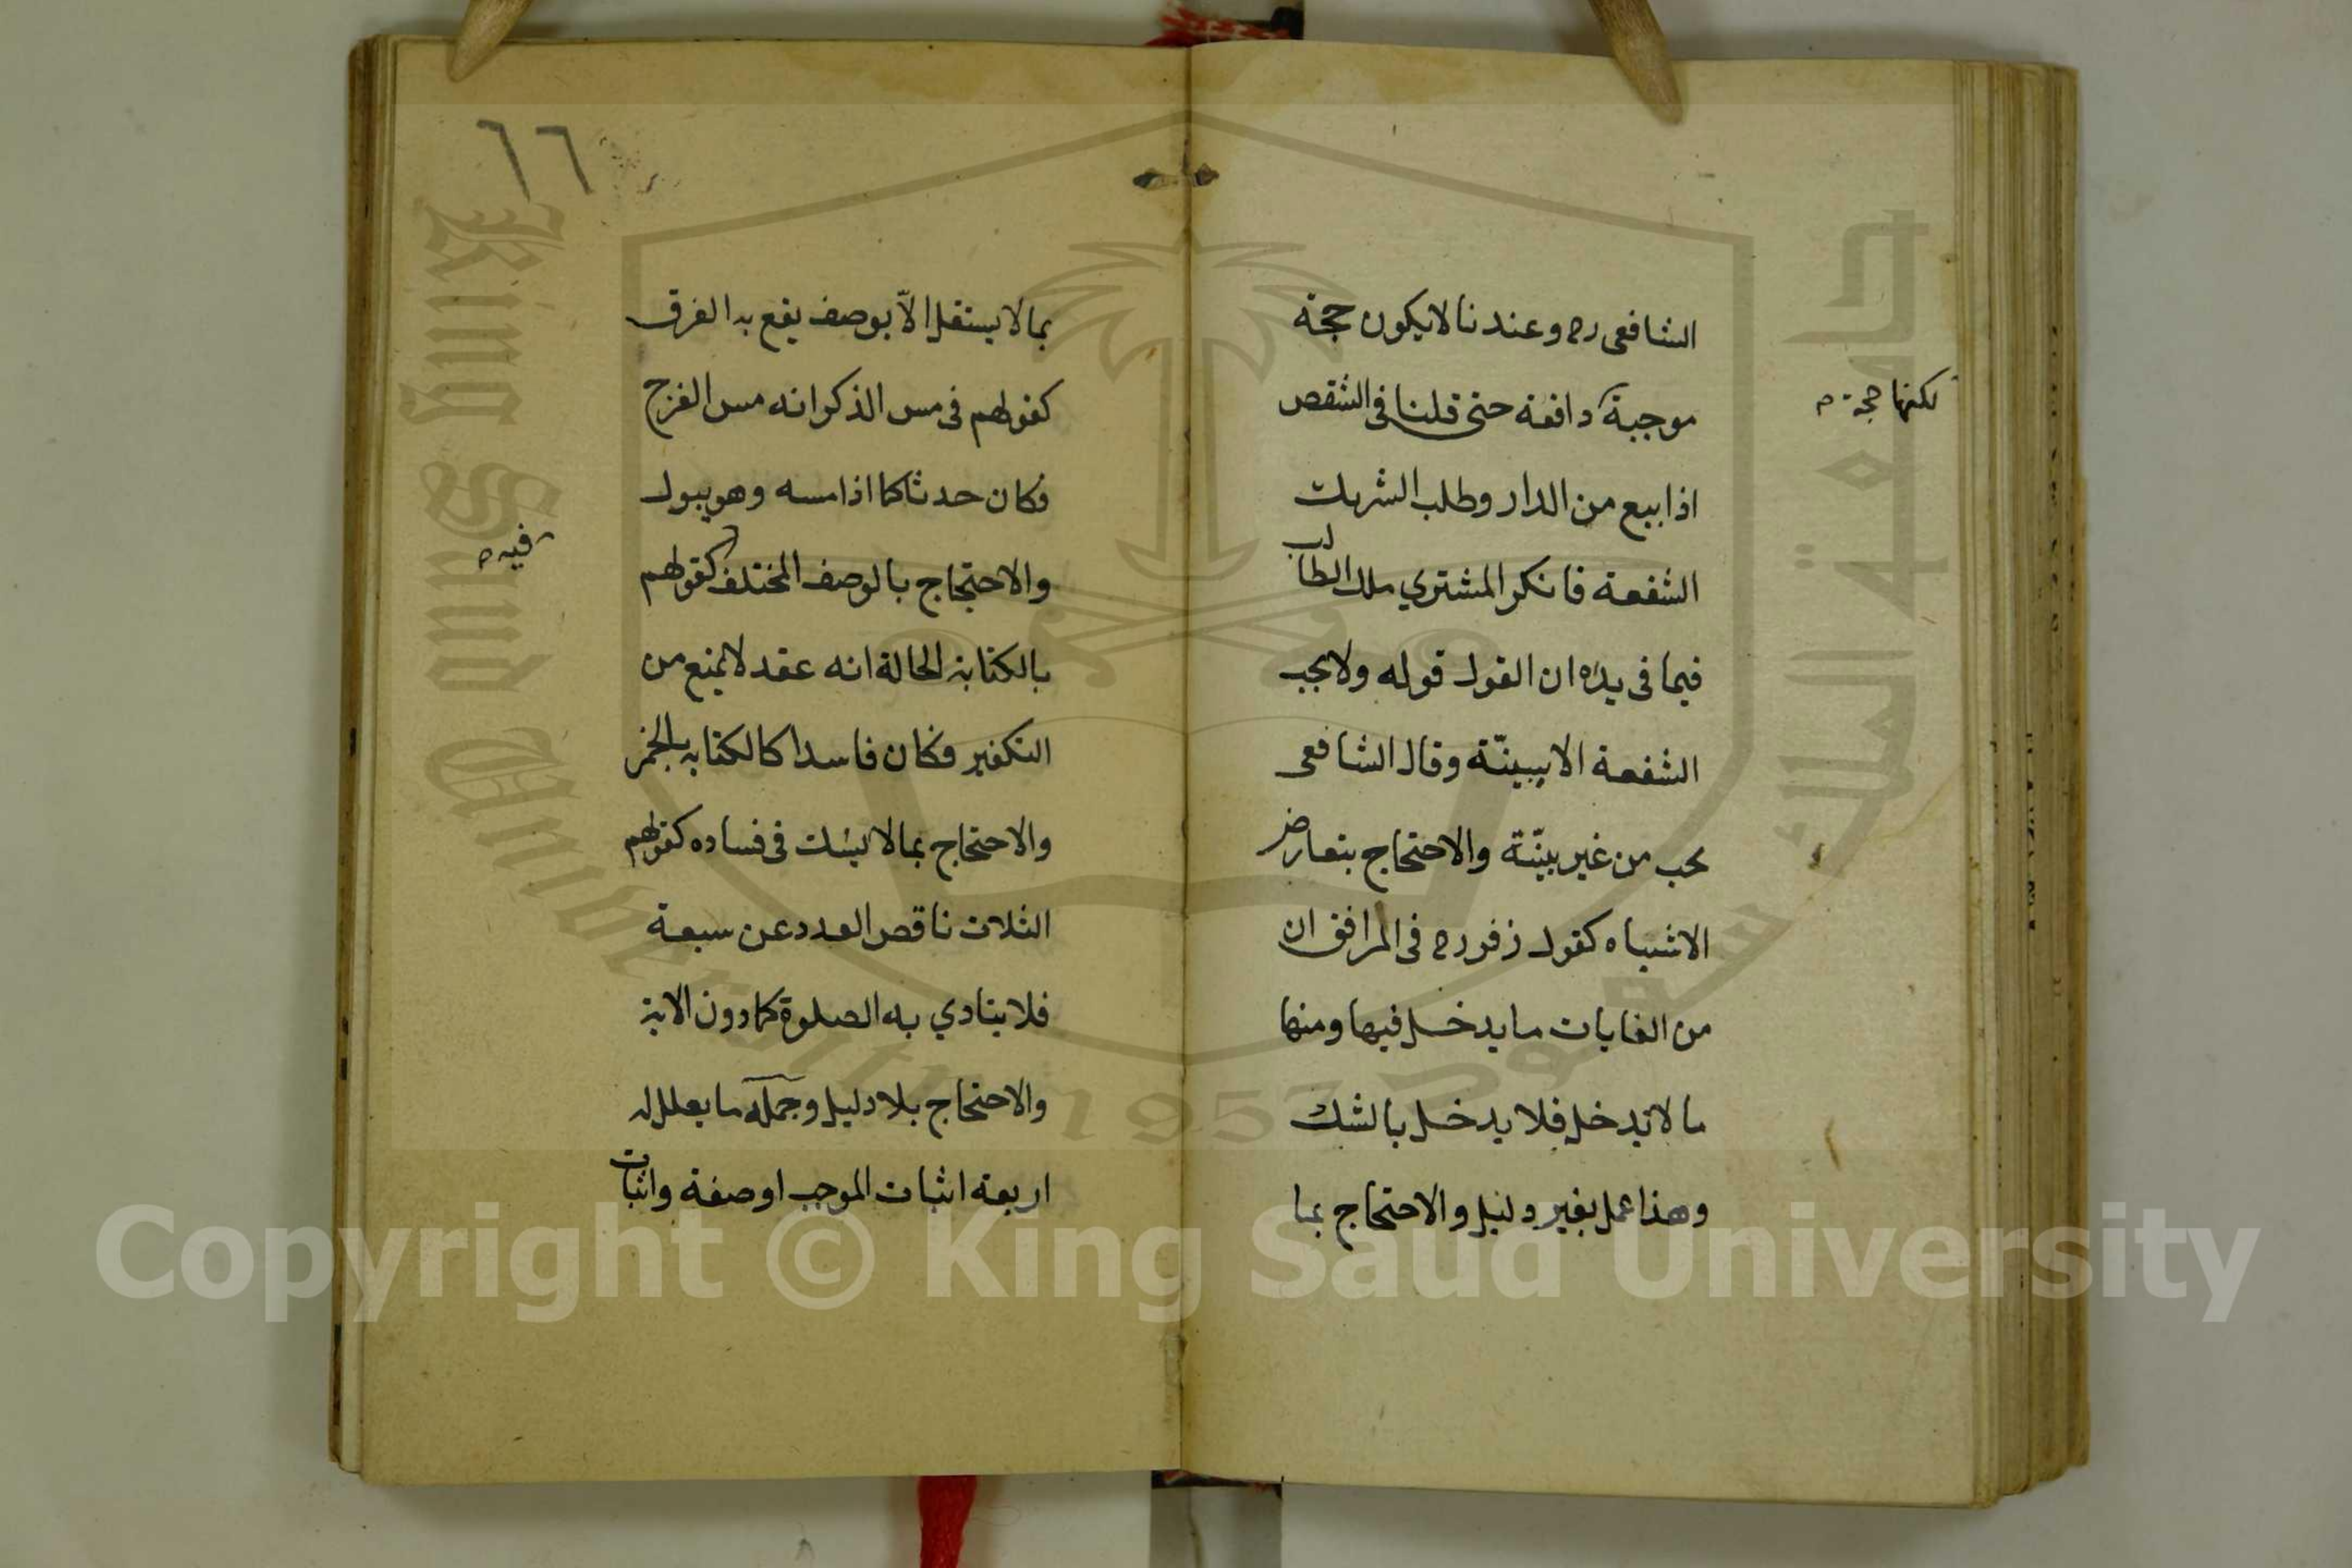 الشافعى رح وعندنا لا يكون حجة
موجبة دافعة حتى قلنا فى الشقص
لكنها حجة م
اذا بيع من الدار وطلب الشريك
الشفعة فانكر المشتري ملك الطالب
فيما فى يده ان القول قوله ولا يجب
الشفعة الا ببينّة وقال الشافعى
يجب من غير بيّنة والاحتجاج بتعارض
الاشباه كقول زفر رح فى المرافق ان
من الغايات ما يدخل فيها ومنها
ما لا يدخل فلا يدخل بالشك
وهذا عمل بغير دليل والاحتجاج بما
٦٦
بما لا يستقل الّا بوصف يقع به الفرق
كقولهم فى مس الذكر انه مس الفرج
فكان حدثا كما اذا مسه وهو يبول
والاحتجاج بالوصف المختلف كقولهم
فيه م
بالكتابة الحالة انه عقد لا يمنع من
التكفير فكان فاسدا كالكتابة بالخمر
والاحتجاج بما لا يشك فى فساده كقولهم
الثلاث ناقص العدد عن سبعة
فلا يتادي به الصلوة كما دون الاية
والاحتجاج بلا دليل وجملة ما يعلل له
اربعة اثبات الموجب او صفة واثبات
جامعة الملك سعود
King Saud University
1957
Copyright © King Saud University